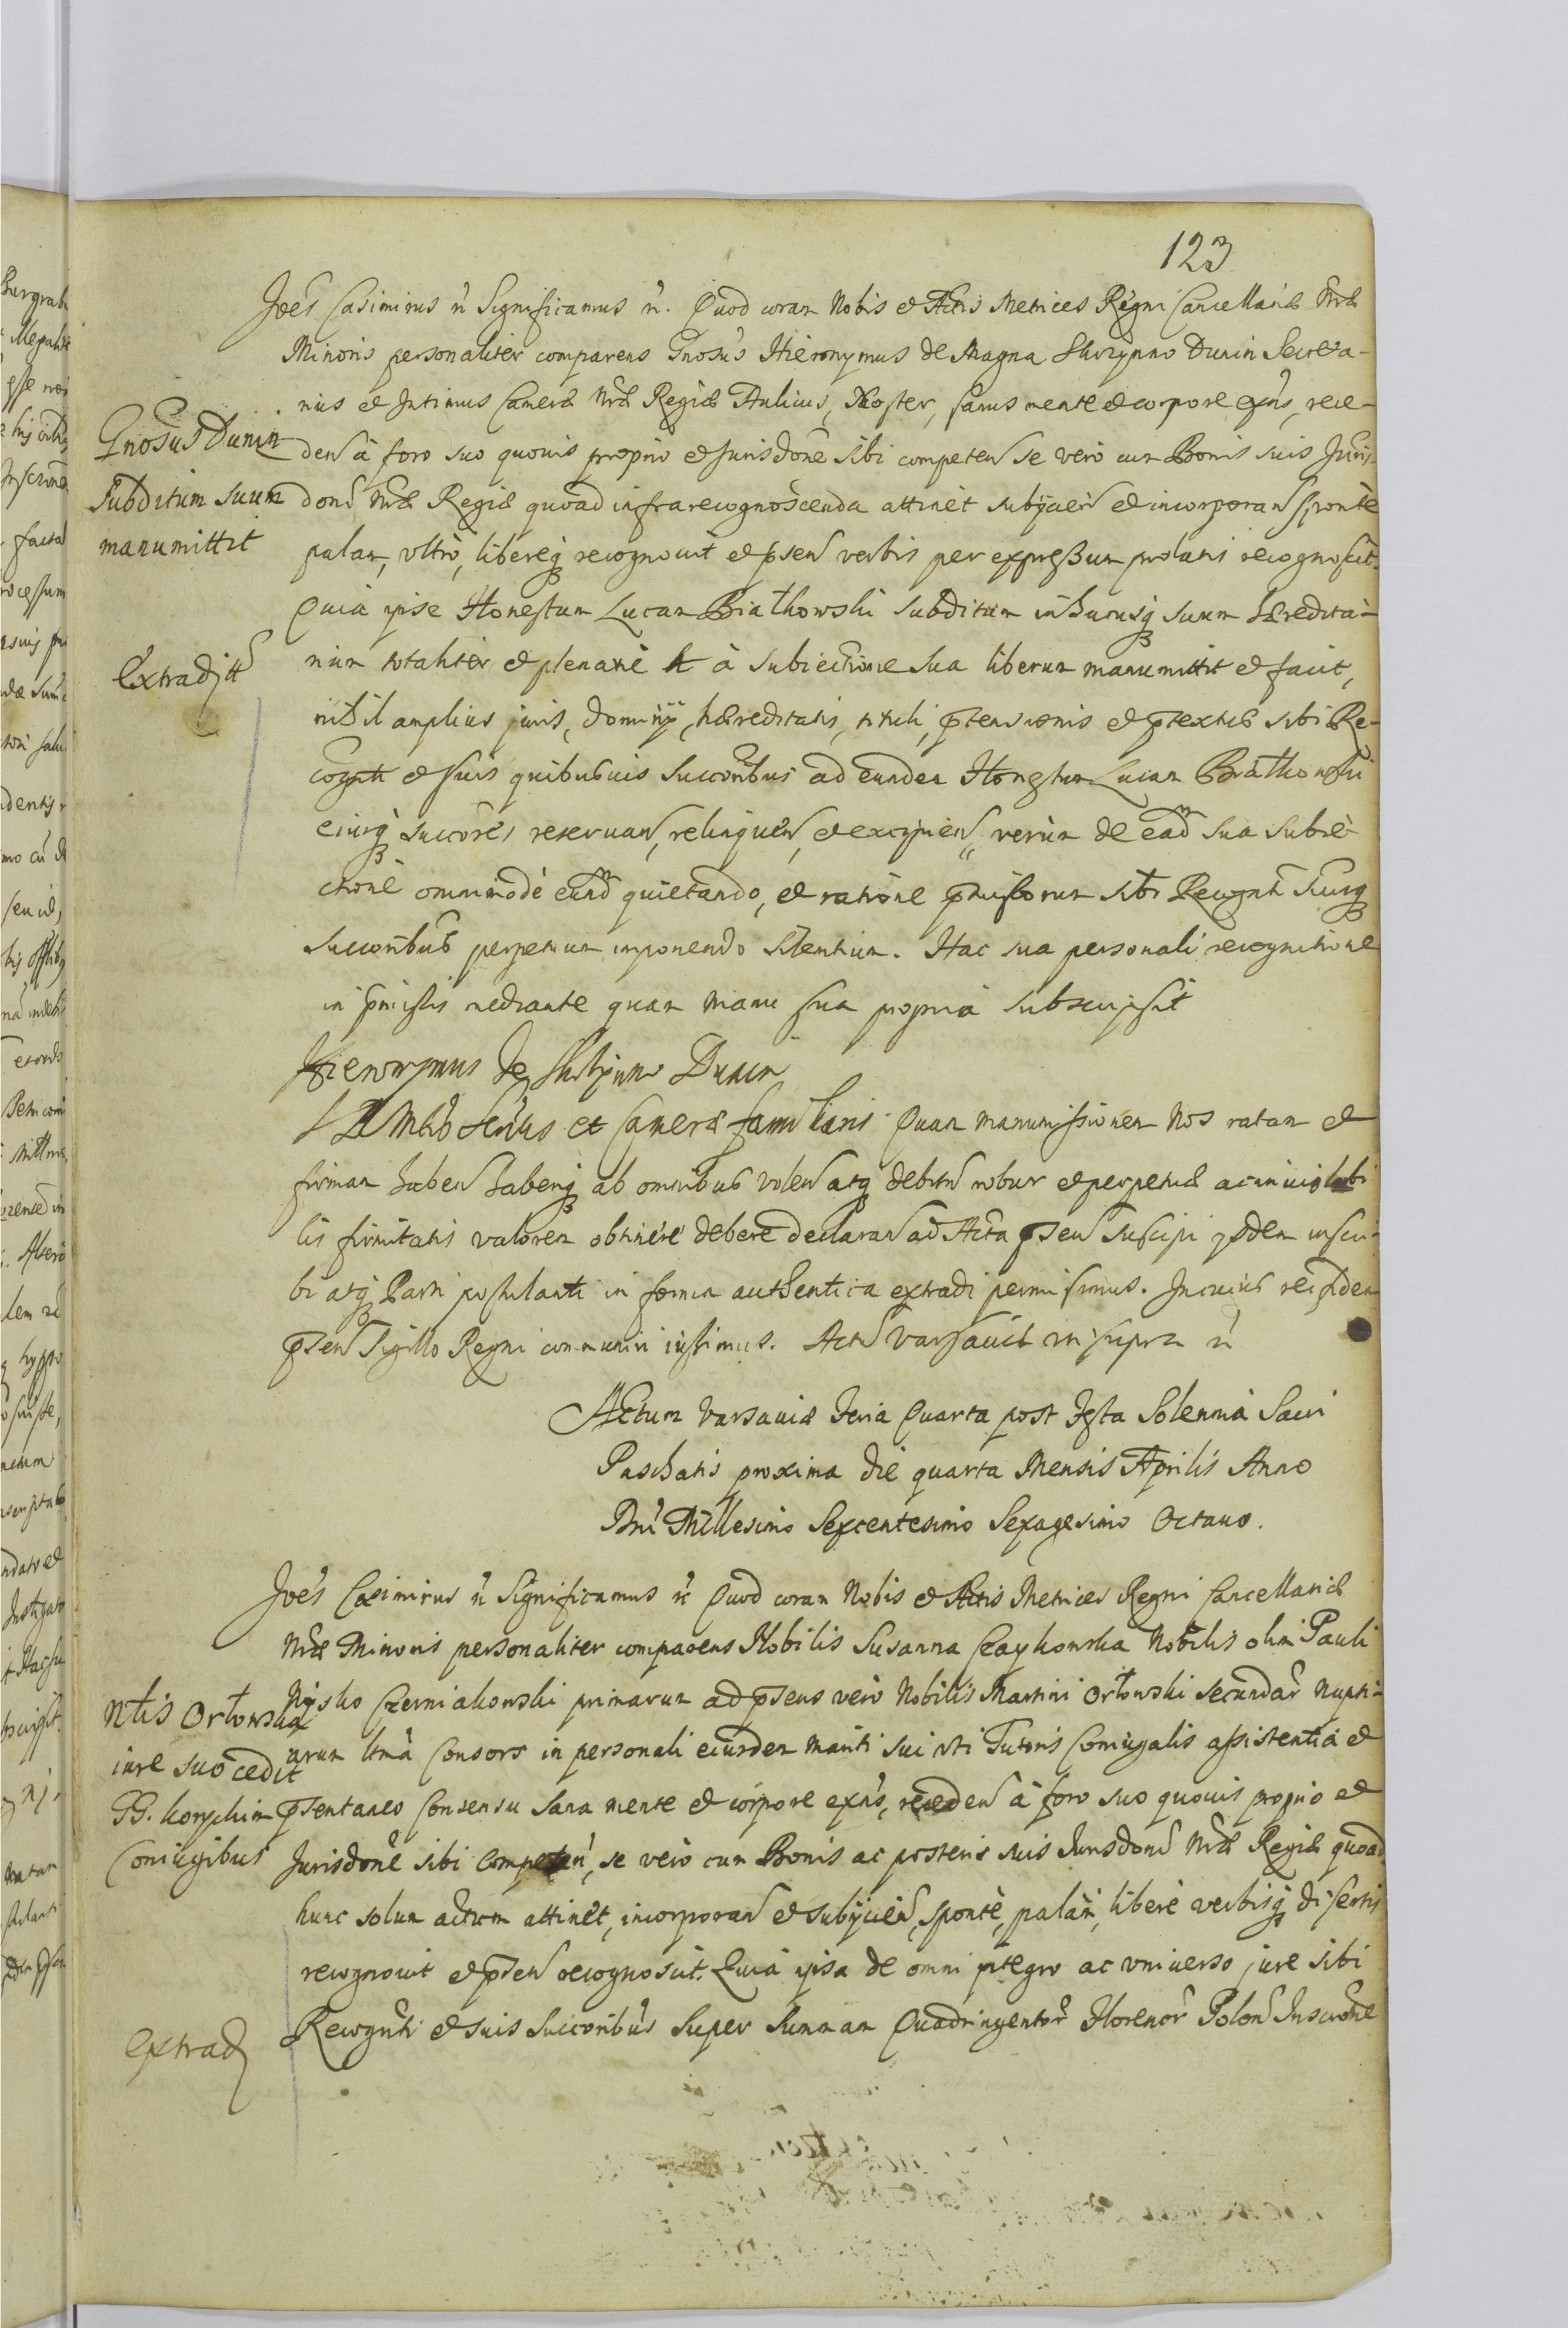 123
Joes Casimirus etc Significamus etc. Quod coram Nobis et Actis Metrices Regni Cancellariæ Nræ
Minoris personaliter comparens Gnosus Hieronymus de Magna Skrzynno Dunin Secreta-
rius et Intimus Cameræ Nræ Regiæ Aulicus, Noster, sanus mente et corpore exns, rece-
Gnosus Dunin
Subditum suum
manumittit
den à foro suo quovis proprio et Jurisdone sibi competen se vero cum Bonis suis Juris-
doni Nræ Regiæ quòad infrarecognoscenda attinet subijcien et incorporan sponte
palam, vltro, libereq recognovit et pnsen verbis per expressum prolatis recognoscit.
Quia ipse Honestum Lucam Białkowski subditum in hucusq suum hæredita-
Extraditt
rium totaliter et plenarie à subiectione sua liberum manumittit et facit,
nihil amplius juris, dominij, hæreditatis, tituli, ptensionis et ptextus sibi Re-
cognti et suis quibusvis succoribus ad eundem Honestum Lucam Białkowski
eiusq succores reservan, relinquen, et excipien, verùm de ead sua subie-
ctione omnimodè eund quietando, et ratione pmissorum sibi Recognti Suisq
succoribus perpetuum imponendo silentium. Hac sua personali recognitione
in pmissis mediante quam manu sua propria subscripsit
Hieronymus de Skrzynno Dunin
S R Mtis Srius et Cameræ familiaris Quam manumissionem Nos ratam et
firmam haben haberiq ab omnibus volen atq debitu robur et perpetuæ ac inviolabi
lis firmitatis valorem obtinere debere declaran ad Acta psen suscipi ijsdem inscri-
bi atq Parti postulanti in forma authentica extradi permisimus. In cuius rei fidem
psen Sigillo Regni communiri iussimus. Actu Varsaviæ ut supra etc
Actum Varsaviæ Feria Quarta post Festa Solennia Sacri
Paschatis proxima die quarta Mensis Aprilis Anno
Dni Millesimo Sexcentesimo Sexagesimo Octavo.
Joes Casimirus etc Significamus etc Quod coram Nobis et Actis Metrices Regni Cancellariæ
Nræ Minoris personaliter comparens Nobilis Susanna Czaykowska Nobilis olim Pauli
Nblis Orłowska
iure suo cedit
GG. Koryckim
Coniugibus
Nysko Czerniakowski primarum ad psens vero Nobilis Martini Orłowski secundar nupti-
arum ltma Consors in personali eiusdem mariti sui vti Tutoris Coniugalis assistentia et
psentaneo Consensu sana mente et corpore exns, receden à foro suo quovis proprio et
Jurisdone sibi competen, se vero cum Bonis ac posteris suis Jurisdoni Nræ Regiæ quoad
hunc solum actum attinet, incorporan et subijcien, sponte, palam, libere verbisq disertis
recognovit et psen recognoscit. Quia ipsa de omni integro ac vniuerso jure sibi
Extrad
Recognti et suis Succoribus super Summam Quadringentor Florenor Polon Inscrone